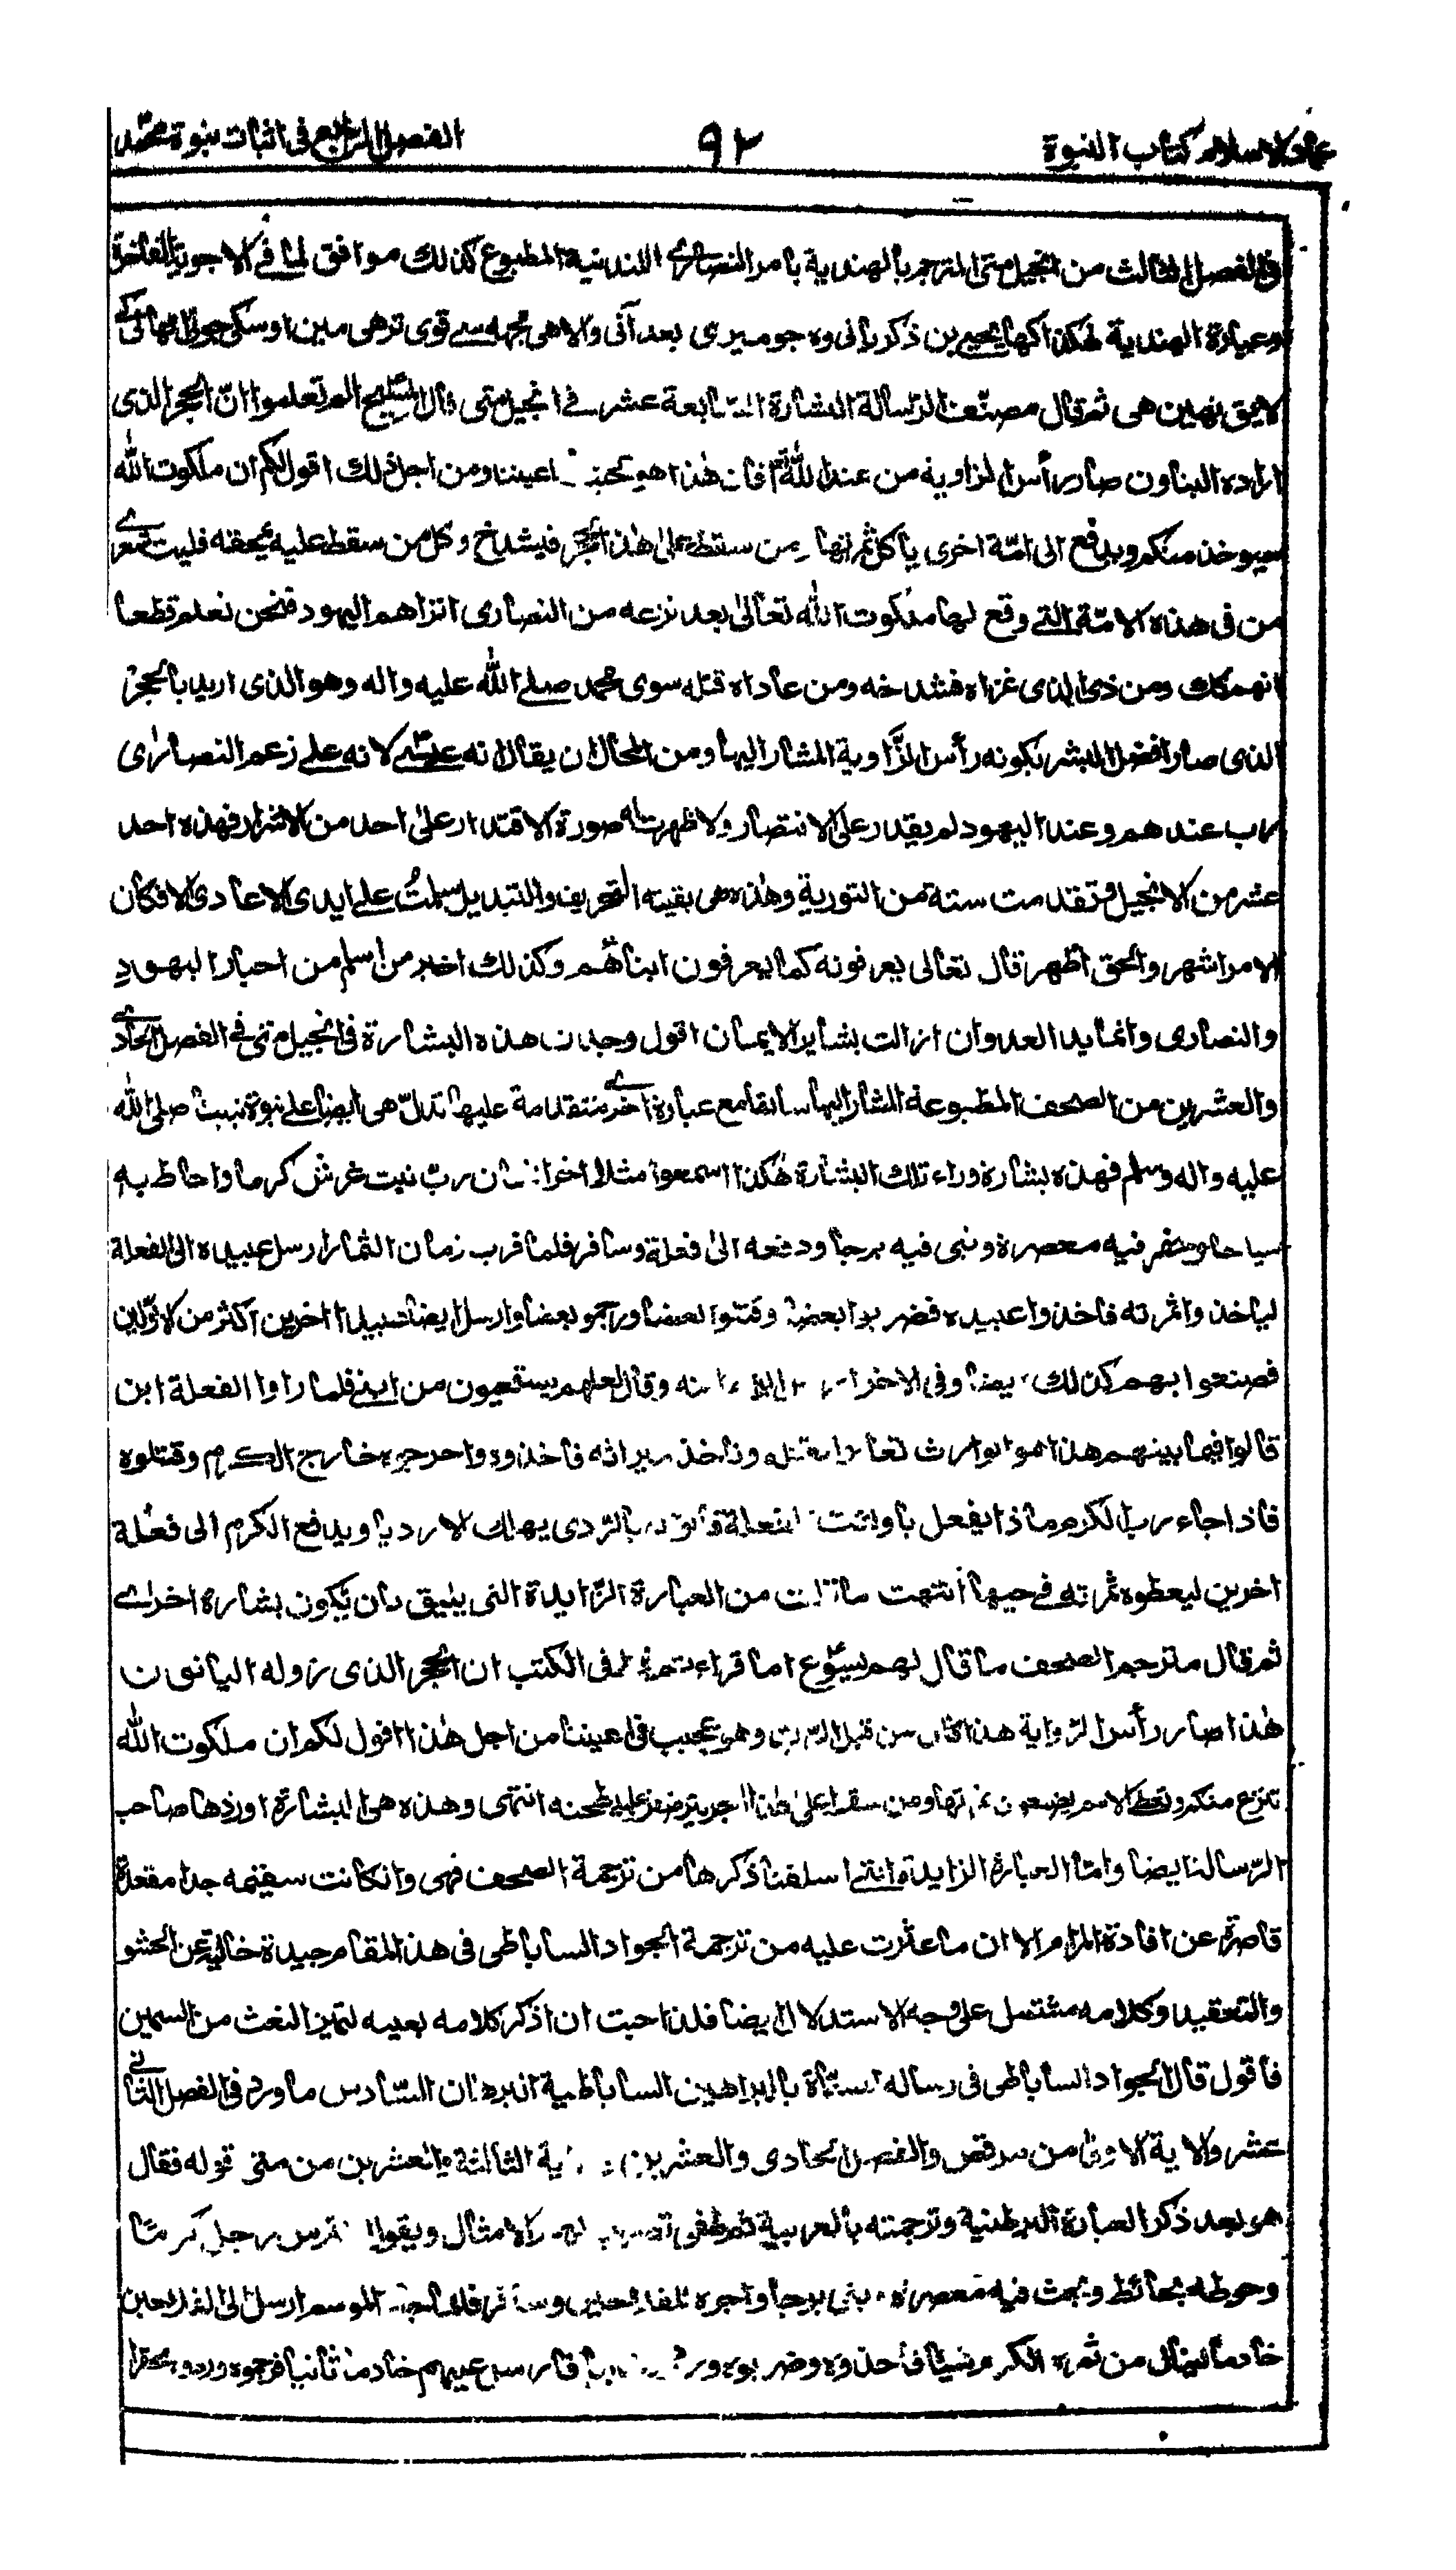 عماد الاسلام كتاب النبوة ٩٢ الفصل الرابع فى اثبات نبوة محمد
فى الفصل الثالث من انجيل متى المترجم بالهندية بامر النصارى اللندنية المطبوع كذلك موافق لما فى الاجوبة الفاخرة
وعبارة الهندية هكذا كها يحيى بن ذكريانى وه جو ميرى بعد آنى والا هى مجهه سے قوى تر هى مين اوسكى جوتى اٹهانى كے
لايق نهين هى ثم قال مصنّف الرسالة البشارة السابعة عشر فے انجيل متى قال المسيح الم تعلموا انّ الحجر الذى
ارذه البناون صار رأس الزاوية من عند الله كان هذا هو اعيننا ومن اجل ذلك اقول لكم ان ملكوت الله
سيوخذ منكم ويدفع الى امّة اخرى يأكل ثمرتها ومن سقط على هذا الحجر فيشدخ وكل من سقط عليه يمحقه فليت شعرے
من فى هذه الامّة التے وقع لها ملكوت الله تعالىٰ بعد نزعه من النصارى اتراهم اليهود فنحن نعلم قطعا
انهم كك ومن ذى الذى غزاه فشدخه ومن عاداه قتله سوى محمد صلے الله عليه واله وهو الذى اريد بالحجر
الذى صار افضل المبشر بكونه رأس الزّاوية المشار اليها ومن المحال ان يقال انه عيسے لانه علے زعم النصارٰى
رب عندهم وعند اليهود لم يقدر على الانتصار ولا ظهرت له صورة الاقتدار علىٰ احد من الاشرار فهذه احد
عشر من الانجيل وتقدمت ستة من التورية وهذه هى بقيته التحريف والتبديل سلمتُ علے ايدى الاعادى الا فكان
الامر اشهر والحق اظهر قال تعالى يعرفونه كما يعرفون ابنائهم وكذلك اخبر من اسلم من احبار اليهود
والنصارى وانما يد العدوان ازالت بشاير الايمان اقول وجدت هذه البشارة فى انجيل متى فے الفصل الحادے
والعشرين من الصحف المطبوعة المشار اليها سابقا مع عبارة اخرے متقدمة عليها تدلّ هى ايضا على نبوة نبينا صلى الله
عليه واله وسلم فهذه بشارة وراء تلك البشارة هٰكذا اسمعوا مثلا اخر انسان ربّ نبت غرش كرما واحاط به
سياحا وحفر فيه معصرة ونبى فيه برجا ودفعه الىٰ فعلة وسافر فلما قرب زمان الثمار ارسل عبيده الى الفعلة
لياخذوا ثمرته فاخذوا عبيده فضربوا بعضا وقتلوا بعضا ورجموا بعضا وارسل ايضا عبيدا اخرين اكثر من الاوّلين
فصنعوا بهم كذلك ايضا وفى الاخر ارسل اليهم ابنه وقال لعلهم يستحيون من ابنے فلما راوا الفعلة ابن
قالوا فيما بينهم هذا هو الوارث تعالوا نقتله وناخذ ميراثه فاخذوه واخرجوه خارج الكرم وقتلوه
فاذا جاء رب الكرم ماذا يفعل باولئك الفعلة بالردى يهلك الارديا ويدفع الكرم الى فعلة
اخرين ليعطوه ثمرته فے حينها انتهت من العبارة الزايدة التى يليق بان يكون بشارة اخرے
ثم قال مترجم الصحف ما قال لهم يسوع اما قراءتم فى الكتب ان الحجر الذى رزوله البانون
هذا صار رأس الزواية هذا كان من قبل الرب وهو عجيب فى اعيننا من اجل هذا اقول لكم ان ملكوت الله
تنزع منكم وتعطى لامم يصنعون ثمرتها ومن سقط على هذا الحجر يترضض عليه طحنه انتهى وهذه هى البشارة اوردها صاحب
الرسالة ايضا وامّا العبارة الزايدة التے اسلفنا ذكرها من ترجمة الصحف فهى وانكانت سقيمه جدا مقعدة
قاصرة عن افادة المرام الا ان ما عثرت عليه من ترجمة الجواد الساباطى فى هذا المقام جيدة خالية عن الحشو
والتعقيد وكلامه مشتمل على وجه الاستدلال ايضا فلذا احبت ان اذكر كلامه بعينه لتميز الغث من السمين
فاقول قال الجواد الساباطى فى رساله المسماة بالبراهين الساباطية البرهان السّادس ما ورد فى الفصل الثانے
عشر والاية الاولىٰ من مرقص والفصل الحادى والعشرين الاية الثالثة والعشرين من متى قوله فقال
هو بعد ذكر العبارة البرطنية وترجمته بالعربية فطفق لهم الامثال ويقول غرس رجل كرمًا
وحوطه بحائط وبحث فيه معصرة وبنى برجا واجره للفلاحين وسافر فلما الموسم ارسل الى الفلاحين
خادما لينال من ثمره الكرم شيئا فاخذوه وضربوه اليهم خادما ثانيا فرجموه وردوه محقرا